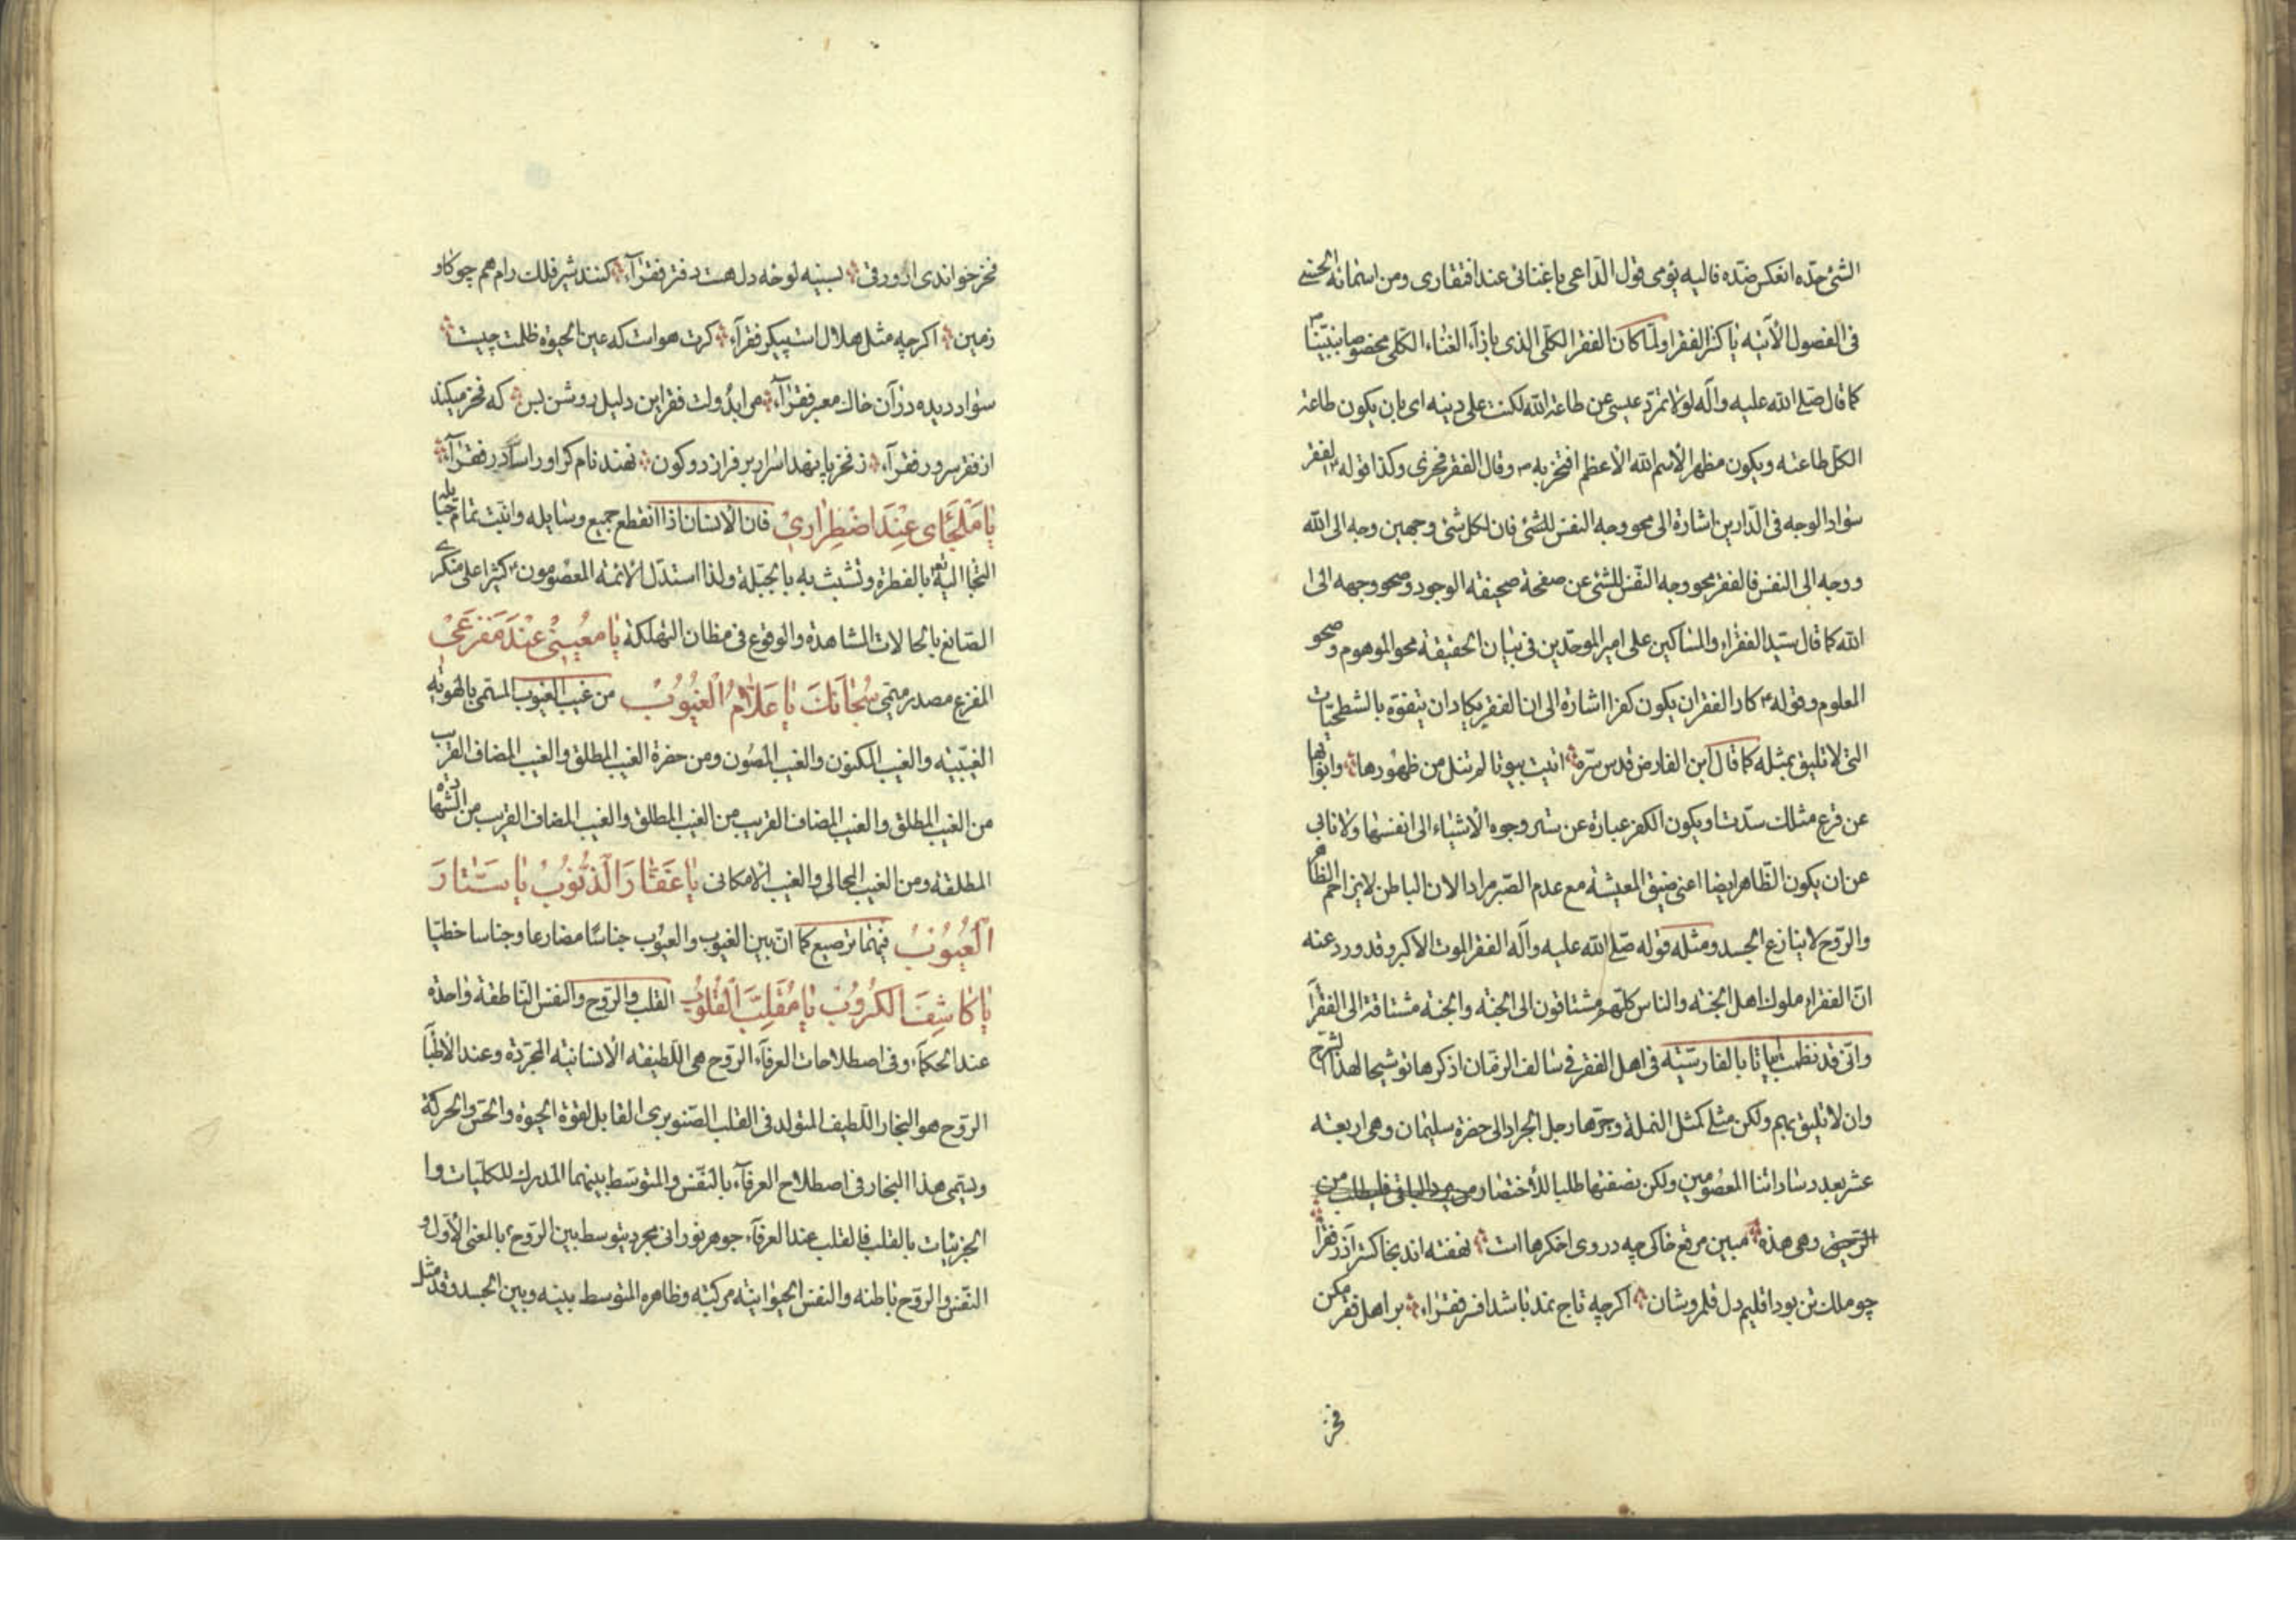 الشئ حدّه انعكس ضدّه فاليه يؤمى قول الدّاعى يا غنائى عند افتقارى ومن اسمائه الحسنى
فى الفصول الآتيه يا كنز الفقراء ولمّا كان الفقر الكلّى الذى بازاء الغناء الكلّى مخصوصا بنبيّنا ص
كما قال صلى الله عليه وآله لولا تمرّد عيسى عن طاعة الله لكنت على دينه اى بان يكون طاعة
الكل طاعته ويكون مظهر الأسم الله الأعظم افتخر به ص وقال الفقر فخرى وكذا قوله ص الفقر
سواد الوجه فى الدّارين اشارة الى محو وجه النفس للشئ فان لكل شئ وجهين وجه الى الله
ووجه الى النفس فالفقر محو وجه النّفس للشئ عن صفحة صحيفة الوجود وصحو وجهه الى ا
الله كما قال سيّد الفقراء والمساكين على امير الموحّدين فى بيان الحقيقة محو الموهوم وصحو
المعلوم وقوله ص كاد الفقر ان يكون كفرا اشارة الى ان الفقير يكاد ان يتفوّه بالشطحيّات
التى لا تليق بمثله كما قال ابن الفارض قدس سرّه اتيت بيوتا لم تنل من ظهورها وابوابها
عن قرع مثلك سدّت او يكون الكفر عبارة عن ستر وجوه الأشياء الى انفسها ولا تابى
عن ان يكون الظّاهر ايضا اعنى ضيق المعيشة مع عدم الصّبر مرادا لان الباطن لا يزاحم الظاهر
والرّوح لا ينازع الجسد ومثله قوله صلى الله عليه وآله الفقر الموت الاكبر وقد ورد عنه
انّ الفقراء ملوك اهل الجنّة والناس كلّهم مشتاقون الى الجنّة والجنّة مشتاقة الى الفقرآ
وانّى قد نظمت ابياتا بالفارسيّة فى اهل الفقر فى سالف الزمان اذكرها توشيحا لهذا الشرح
وان لا تليق بهم ولكن مثلى كمثل النملة وجرّها رجل الجراد الى حضرة سليمان وهى اربعة
عشر بعدد ساداتنا المعصومين ولكن نصفتها طلبا للأختصار ومن يرد الباقى فليطلب من
الرّحيق وهى هذه مبين مرقع خاكى چه در وى اخكرها است نهفته اند بخاكستر آذر فقرا
چو ملك تن بود اقليم دل قلمروشان اكرچه تاج نمد باشد افسر فقراء بر اهل فقر مكن
فخر
فخر خواندى ار ورقى بسينه لوحه دل هست دفتر فقرآء كنند شير فلك رام هم چو كاو
زمين اكرچه مثل هلال است پيكر فقرآء كرت هواست كه عين الحيوة ظلمت چيست
سواد ديده در آن خاك معبر فقرآء همى بدولت فقر اين دليل روشن بس كه فخر ميكند
از فقر سرور فقرآء ز فخر پا بنهد اسرار بر فراز دو كون نهند نام كر او راسك در فقرآء
يَا مَلْجَاى عِنْدَ اضْطِرارِيْ فان الأنسان اذا انقطع جميع وسايله وانبتّ تمام حباله
التجا اليه تعه بالفطرة وتشبث به بالجبّلة ولذا استدّل الأئمة المعصومون كثيرا على منكرى
الصّانع بالحالات المشاهدة والوقوع فى مظان التهلكة يَا مُعيْنِىْ عِنْدَ مَفْزَعِىْ
المفزع مصدر ميمّى سُبْحانَكَ يَا عَلّامَ الْغُيُوْبْ من غيب الغيوب المسمّى بالهويّة
الغيبيّة والغيب المكنون والغيب المصون ومن حضرة الغيب المطلق والغيب المضاف القريب
من الغيب المطلق والغيب المضاف القريب من الغيب المطلق والغيب المضاف القريب من الشهادة
المطلقة ومن الغيب المحالى والغيب الأمكانى يَا غَفّارَ الْذُنُوْبْ يَا سَتّارَ
الْعُيُوْبْ فيهما ترصيع كما انّ بين الغيوب والعيوب جناسًا مضارعا وجناسا خطيّا
يَا كَاشِفَ الْكُرُوْبْ يَا مُقَلِّبَ الْقُلُوْبْ القلب والرّوح والنفس الناطقة واحدة
عند الحكماء وفى اصطلاحات العرفآء الرّوح هى اللّطيفة الأنسانية المجرّدة وعند الأطبّآ
الرّوح هو البخار اللّطيف المتولد فى القلب الصّنوبرى القابل لقوّة الحيوة والحسّ والحركة
ويسمّى هذا البخار فى اصطلاح العرفآء بالنّفس والمتوسّط بينهما المدرك للكلّيات وا
الجزئيات بالقلب فالقلب عند العرفآء جوهر نورانى مجرد يتوسط بين الرّوح بالمعنى الأوّل و
النّفس والرّوح باطنه والنفس الحيوانيّة مركبته وظاهره المتوسط بينه وبين الجسد وقد مثل